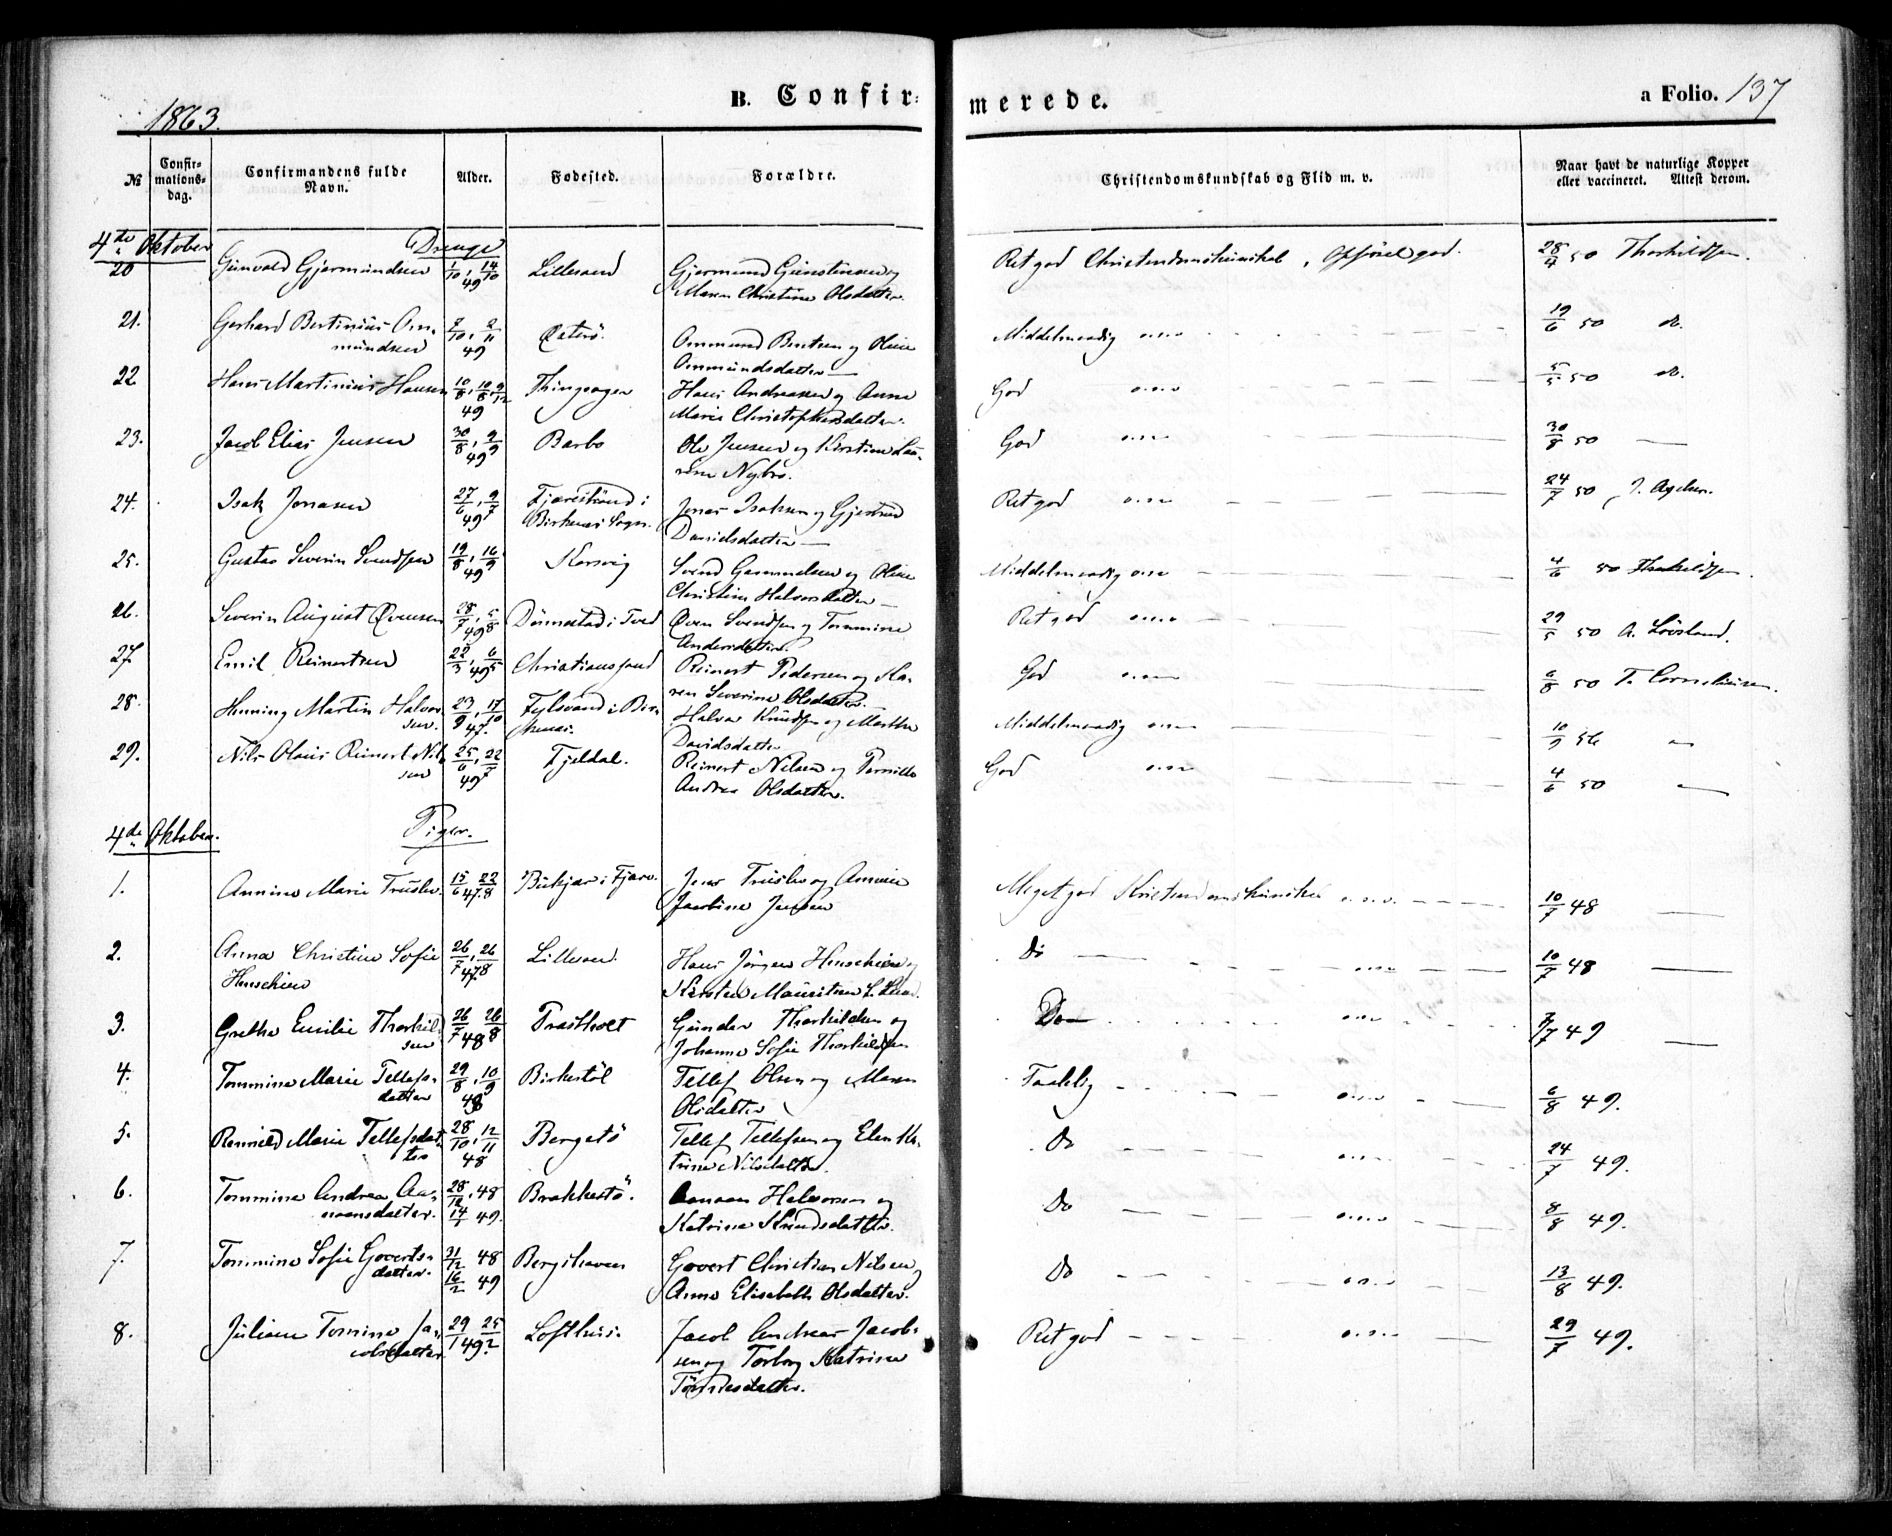 1863.
B. Confir=
merede.
a Folio. 137
№
Confir=
mations=
dag.
Confirmandens fulde
Navn.
Alder.
Fødested.
Forældre.
Christendomskundskab og Flid m. v.
Naar havt de naturlige Kopper
eller vaccineret. Attest derom.
4de Oktober
Drenge
20 Gunvald Gjermundsen 1/10, 14/10 49 Lillesand Gjermund Gunstensen og
Maren Christine Olsdatter.
Ret god Christendomskundskab, Opførsel god. 28/4 50 Thorkildsen.
21. Gerhard Bertinius Om=
mundsen 7/10, 2/11 49 Ommund Bentsen og Oline
Ommundsdatter
Middelmaadig o.s.v. 19/6 50 do.
22 Hans Martinius Hansen 10/8, 49 Thingsager Hans Andreassen og Anne
Marie Christophersdatter.
God o.s.v. 5/5 50 do.
23. Jacob Elias Jensen 30/8, 9/9 49 Barbo Ole Jensen og Kirstine Lau=
rine Nybro.
God o.s.v. 30/8 50 —
24. Isak Jonasen 27/6, 9/7 49 i
Birkenes Sogn. Jonas Isaksen og Gjertrud
Davidsdatter —
Ret god o.s.v. 24/7 50 J.
25. Gustav Severin Svendsen 19/8, 16/9 49 Korsvig Svend Gammelsen og Oline
Christine Halvorsdatter —
Middelmaadig o.s.v. 4/6 50 Thorkildsen.
26. Severin August Øvensen 28/7, 5/8 49 Dønnestad i Tved Øven Svendsen og Tommine
Andersdatter.
Ret god o.s.v. 29/5 50 A. Løvsland.
27. Emil Reinertsen 22/3, 6/5 49 Christianssand Reinert Pedersen og Ka=
ren Severine Olsdatter. —
God o.s.v. 6/8 50 T. Corneliusen.
28. Henning Martin Halvor
sen. 23/9, 17/10 47. i Bir=
kenes. Halvor Knudsen og Marthe
Davidsdatter
Middelmaadig o.s.v. 10/9 56 "
29. Nils Olaus Reinert Nil
sen 25/6, 22/7 49 Fjeldal. Reinert Nilsen og Pernille
Andrea Olsdatter.
God o.s.v. 4/6 50 "
4de Oktober.
Piger.
1. Annine Marie Truslev. 15/6 22/8 47. Bukjær i Fjære. Jens Truslev og Annine
Jacobine Jensen
Meget god Kristendomskundskab o.s.v. 10/7 48 —
2. Anna Christine Sofie
Henschien 26/7, 26/8 47 Lillesand. Hans Jørgen Henschien og
Kirsten Mauritsen
Do o.s.v. 10/7 48 —
3. Grethe Emilie Thorkild
sen 26/7 26/8 48 Præstholt Gunder Thorkildsen og
Johanne Sofie Thorkildsen
Do o.s.v. 7/7 49 —
4. Tommine Marie Tellefs=
datter 29/8, 10/9 48 Birkestøl Tellef Olsen og Maren
Olsdatter
Taalelig o.s.v. 6/8 49.
5. Marie Tellefsdat=
ter 28/10, 12/11 48 Bergstø Tellef Tellefsen og Elen Ka=
trine Nilsdatter.
Do o.s.v. 24/7 49.
6. Tommine Andrea Aa=
nonsdatter. 28/12, 48
14/1 49. Brækkestø. Aanon Halvorsen og
Katrine Knudsdatter.
Do o.s.v. 8/8 49.
7. Tommine Sofie Goverts=
datter. 31/12 48
16/2 49 Bergshaven Govert Christian Nilsen og
Anne Elisabeth Olsdatter.
Do o.s.v. 13/8 49.
8. Juliane Tomine Ja=
cobsdatter 29/1 25/2 49. Lofthus. Jacob Andreas Jacob=
sen og Torborg Katrine
Tønnesdatter.
Ret god o.s.v. 29/7 49.